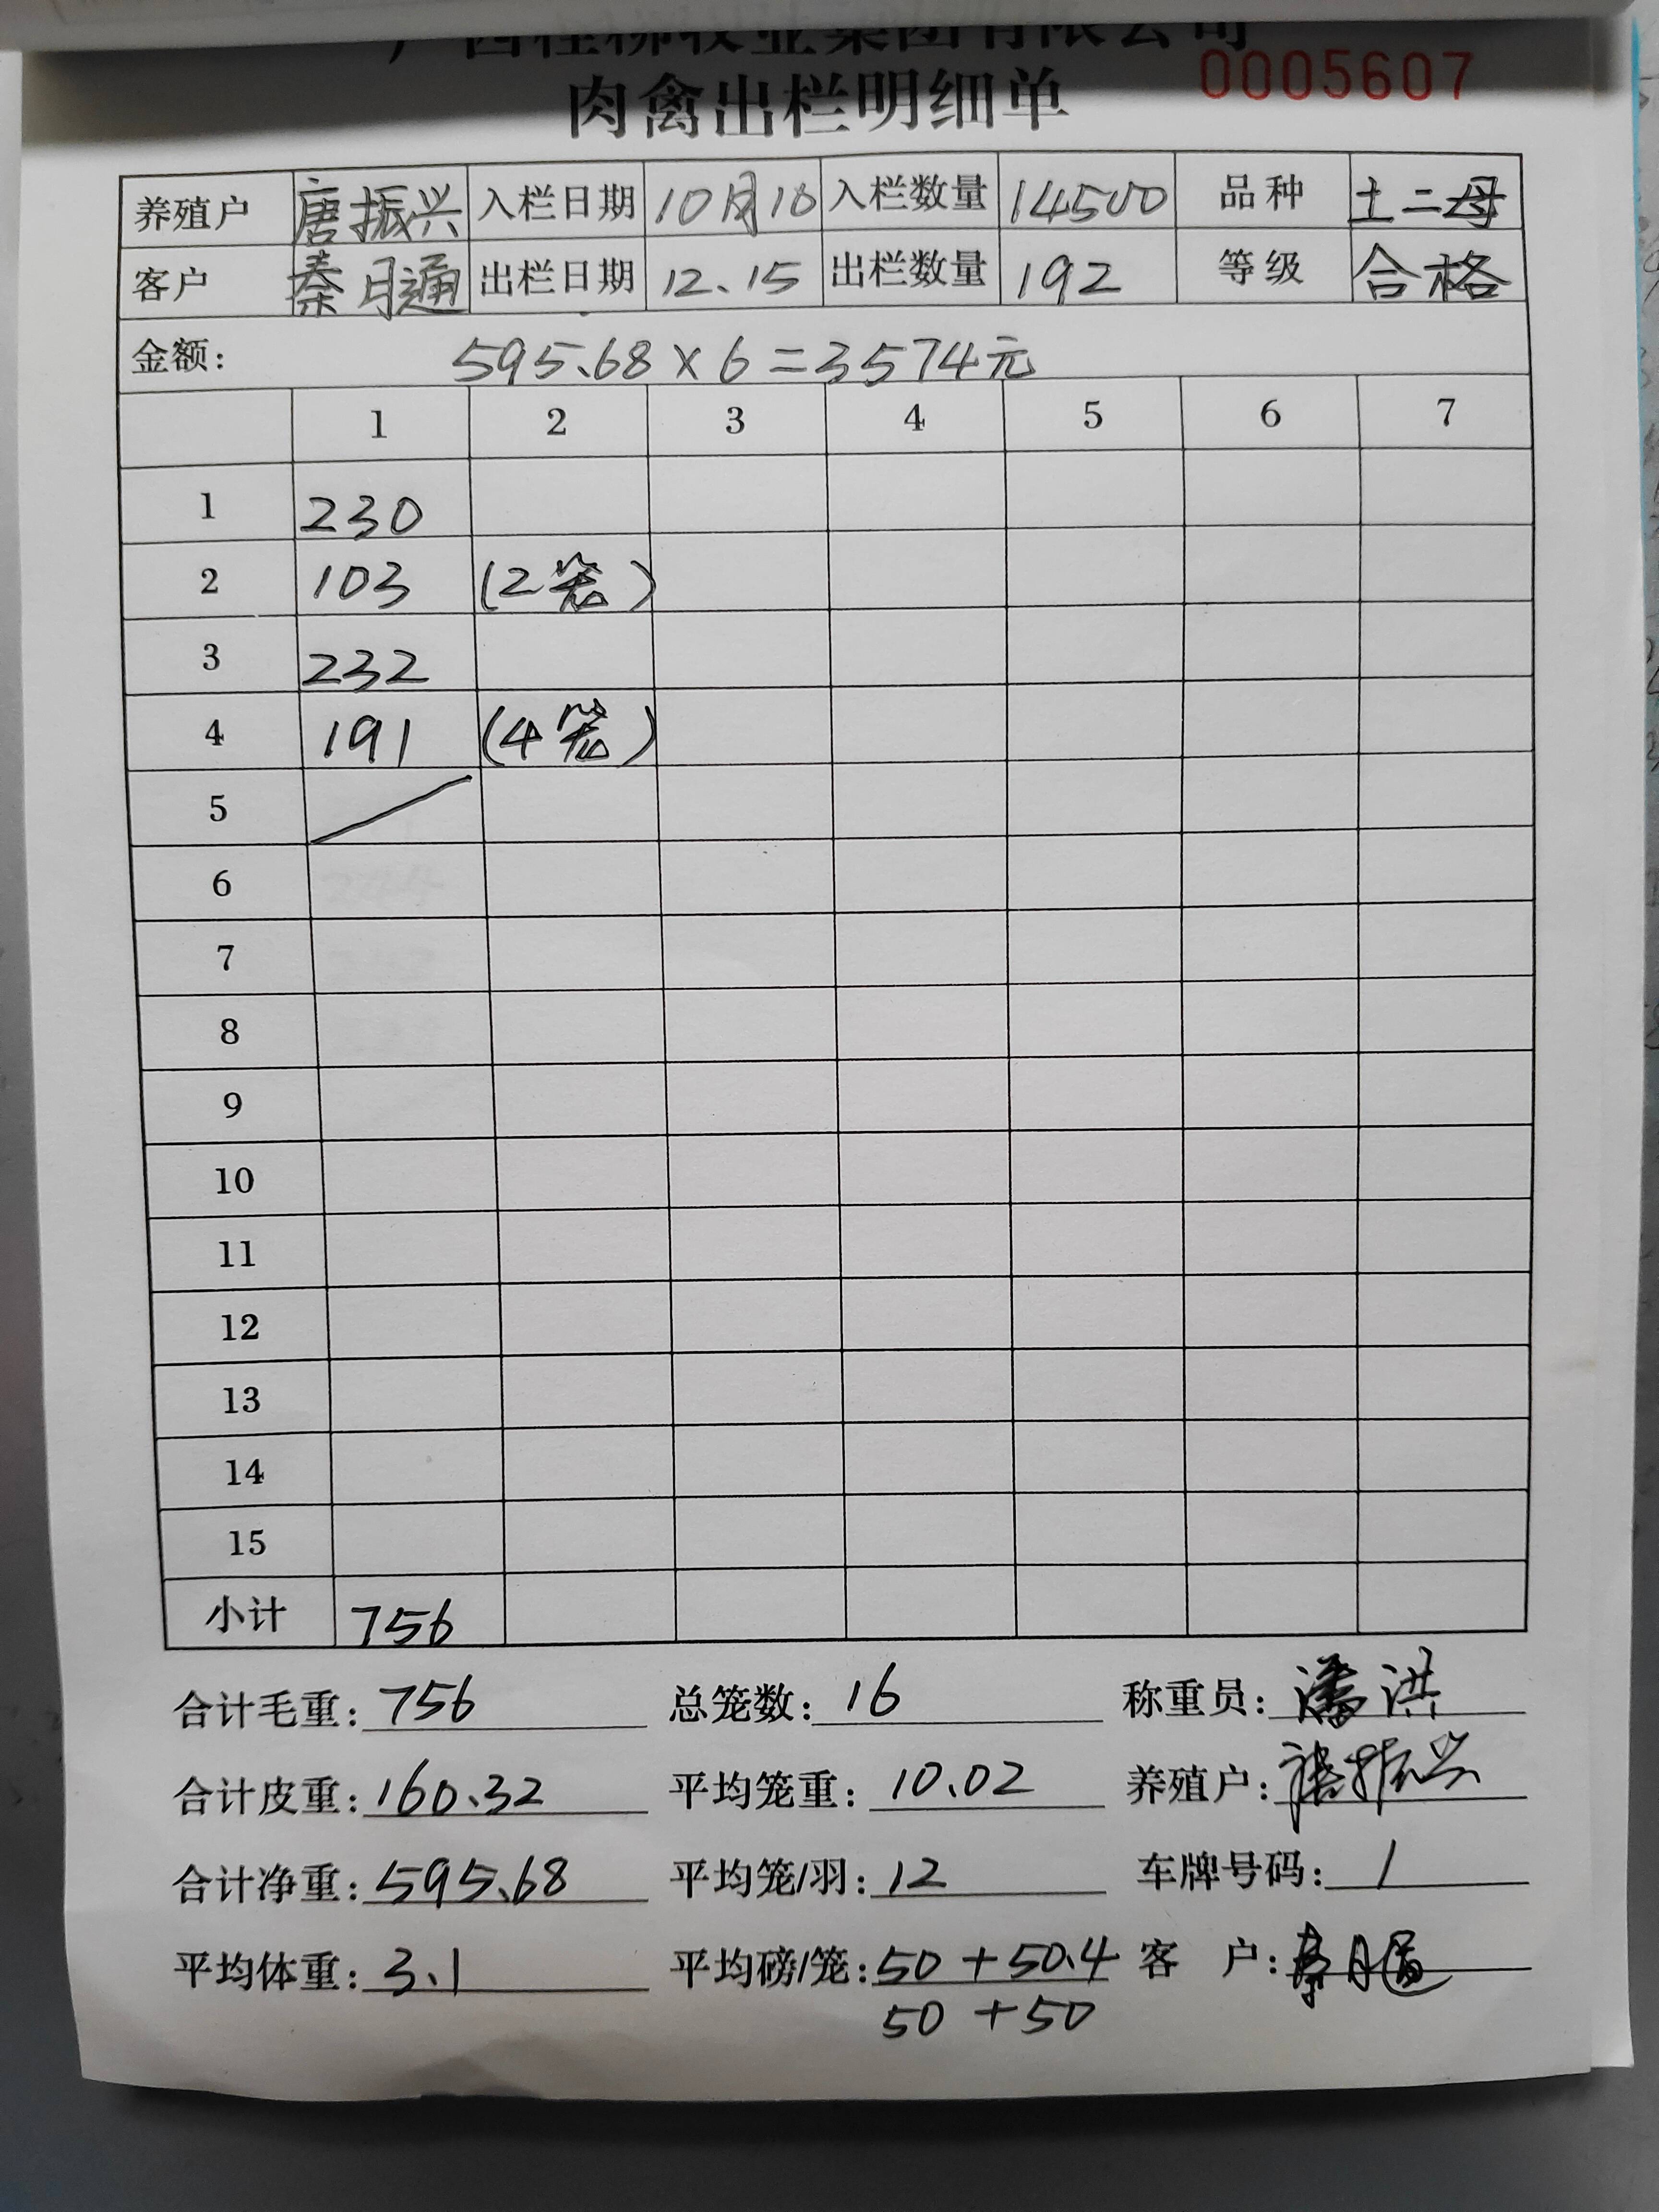 广西桂柳牧业集团有限公司
肉禽出栏明细单 0005607
养殖户 唐振兴 入栏日期 10月10 入栏数量 14500 品种 土二母
客户 秦月通 出栏日期 12.15 出栏数量 192 等级 合格
金额: 595.68×6=3574元
1 2 3 4 5 6 7
1 230
2 103 (2笼)
3 232
4 191 (4笼)
5
6
7
8
9
10
11
12
13
14
15
小计 756
合计毛重: 756 总笼数: 16 称重员: 潘洪
合计皮重: 160.32 平均笼重: 10.02 养殖户: 唐振兴
合计净重: 595.68 平均笼/羽: 12 车牌号码: 1
平均体重: 3.1 平均磅/笼: 50+50.4 客 户: 秦月通
50+50